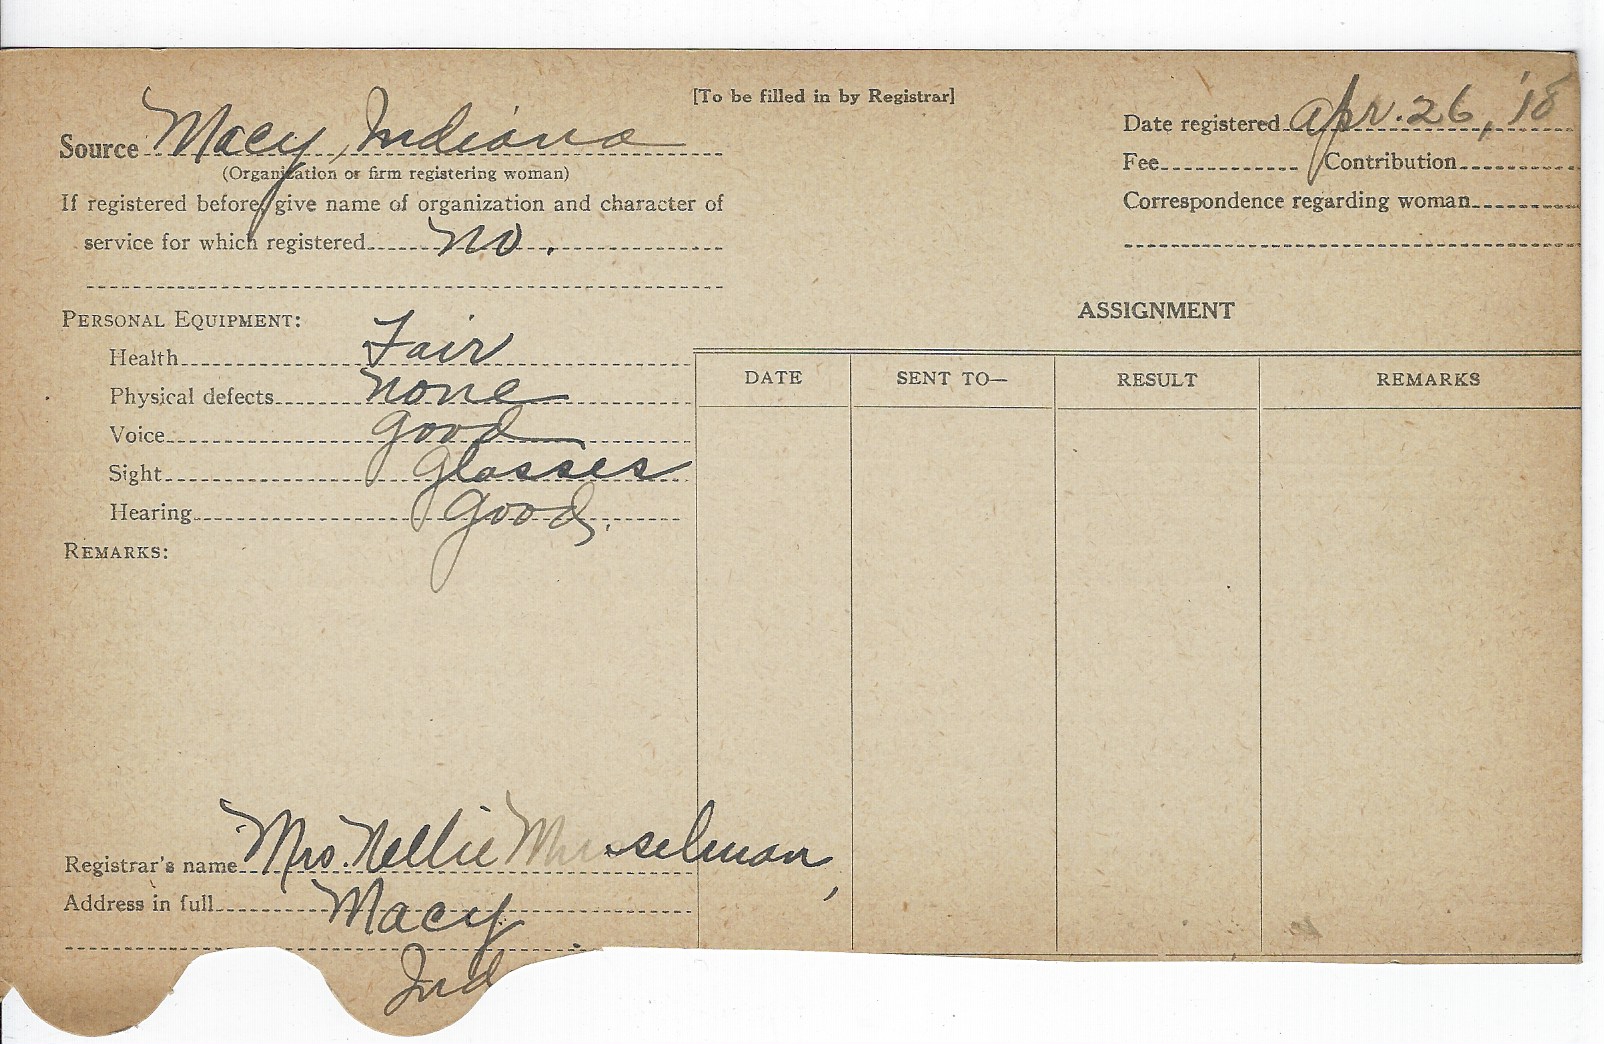 [To be filled in by Registrar]
Source Macy, Indiana
(Organization or firm registering woman)
If registered before, give name of organization and character of
service for which registered no.
Date registered Apr. 26, '18
Fee Contribution
Correspondence regarding woman
PERSONAL EQUIPMENT:
Health Fair
Physical defects none
Voice good
Sight glasses
Hearing good.
REMARKS:
ASSIGNMENT
DATE SENT TO— RESULT REMARKS
Registrar's name Mrs. Nellie Musselman,
Address in full Macy
Ind